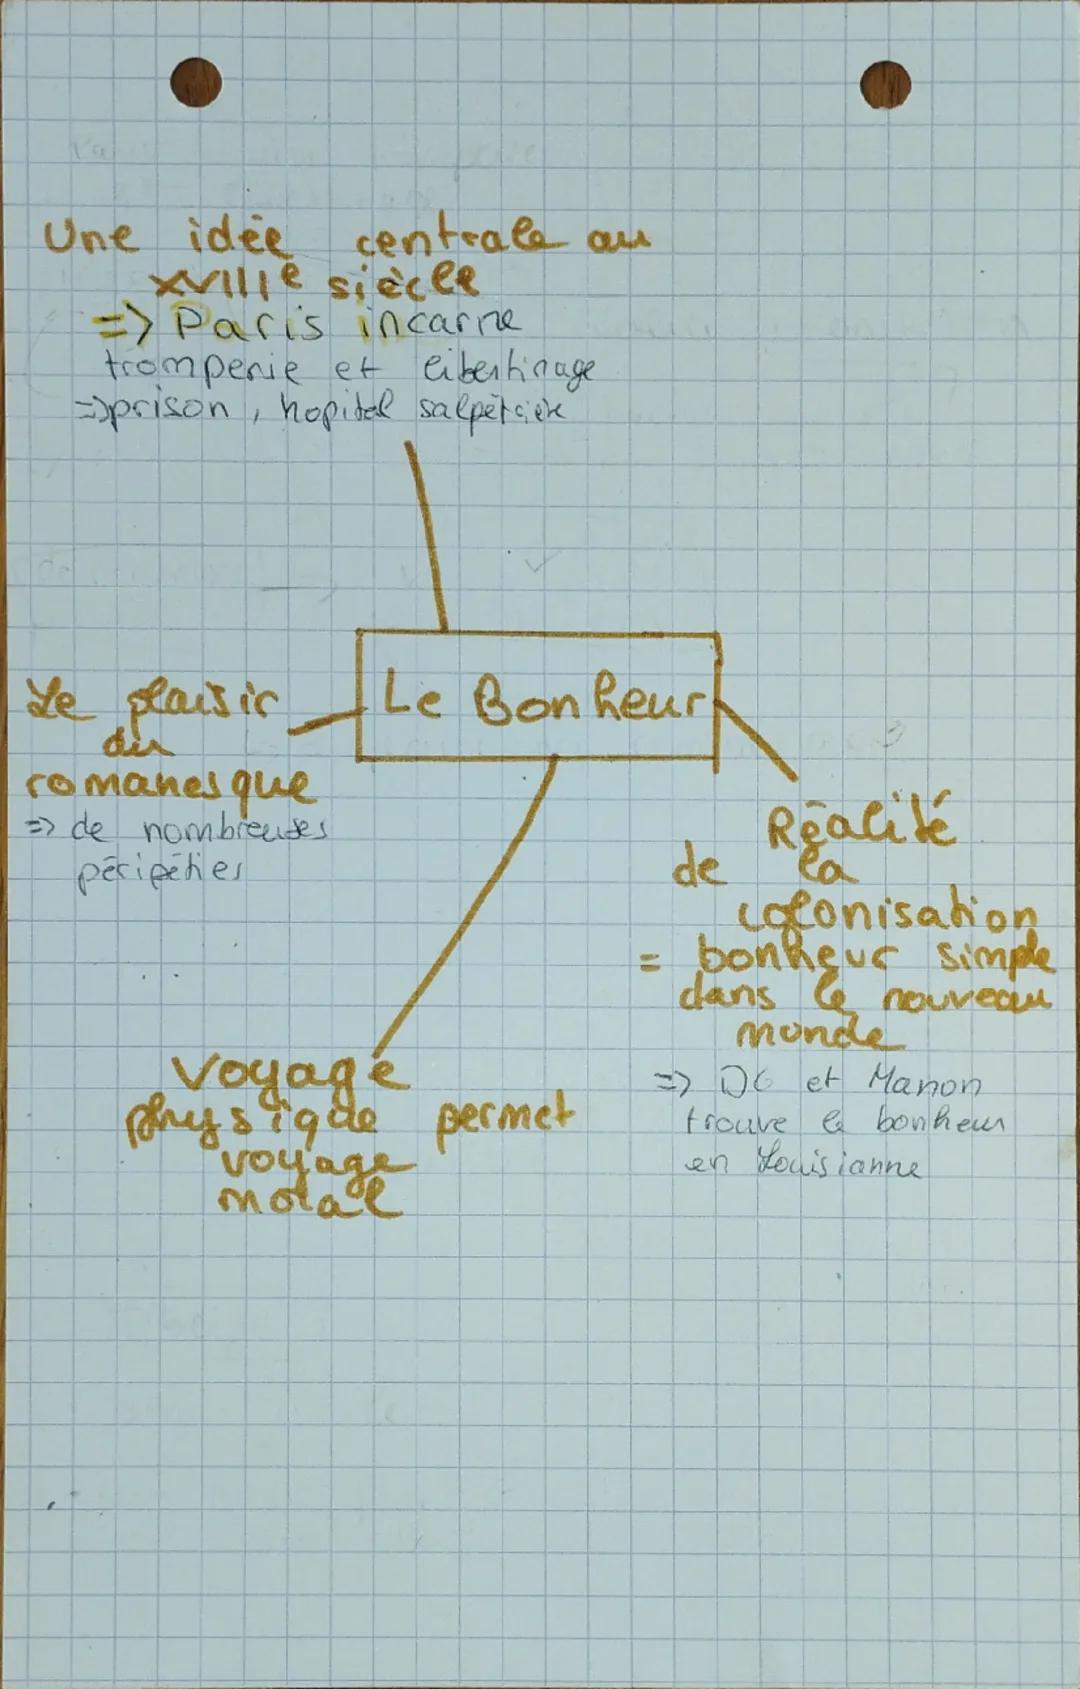 Une idée centrale au
XVIIIe siècle
=> Paris incarne
tromperie et libertinage
=> prison, hopital salpêtrière
Le Bonheur
Le plaisir
du
romanesque
=> de nombreuses
péripéties
Réalité
de la
colonisation
= bonheur simple
dans le nouveau
monde
=> DG et Manon
trouve le bonheur
en Louisianne
Voyage
physique permet
voyage
moral